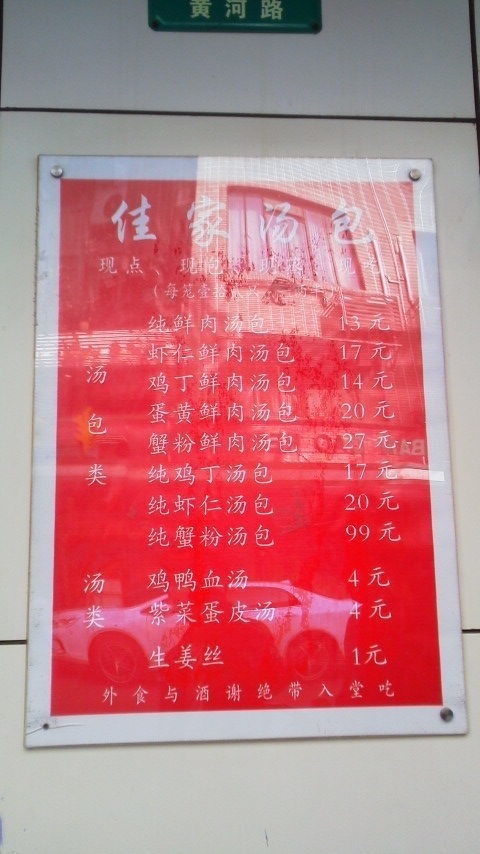 黄河路
佳家汤包
现点、现包、现蒸、现吃
(每笼壹拾贰只
纯鲜肉汤包 13元
虾仁鲜肉汤包 17元
鸡丁鲜肉汤包 14元
蛋黄鲜肉汤包 20元
蟹粉鲜肉汤包 27元
纯鸡丁汤包 17元
纯虾仁汤包 20元
纯蟹粉汤包 99元
汤包类
鸡鸭血汤 4元
紫菜蛋皮汤 4元
汤类
生姜丝 1元
外食与酒谢绝带入堂吃